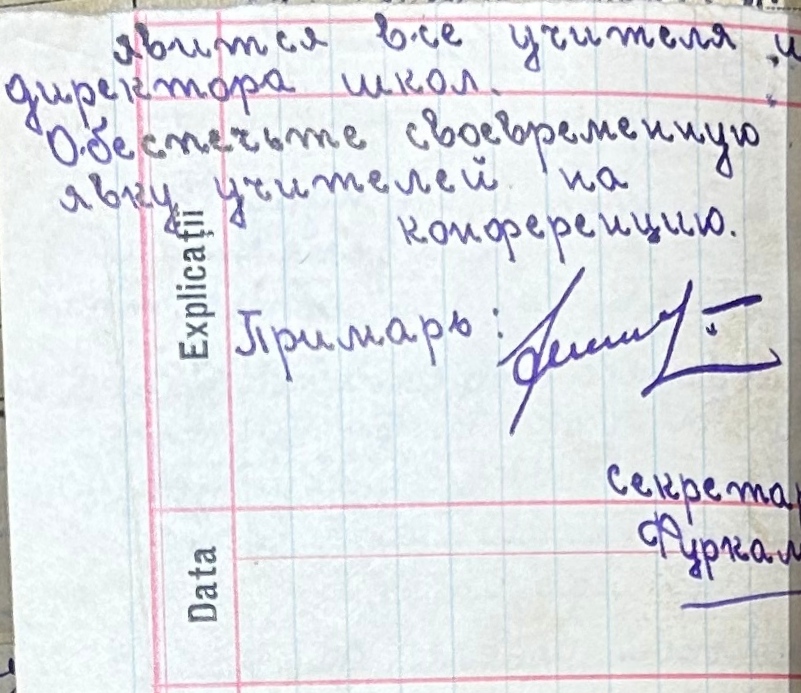 явится все учителя и
директора школ.
Обеспечьте своевременную
явку учителей на
конференцию.
Explicații
Примарь:
секрета
Фуркал
Data